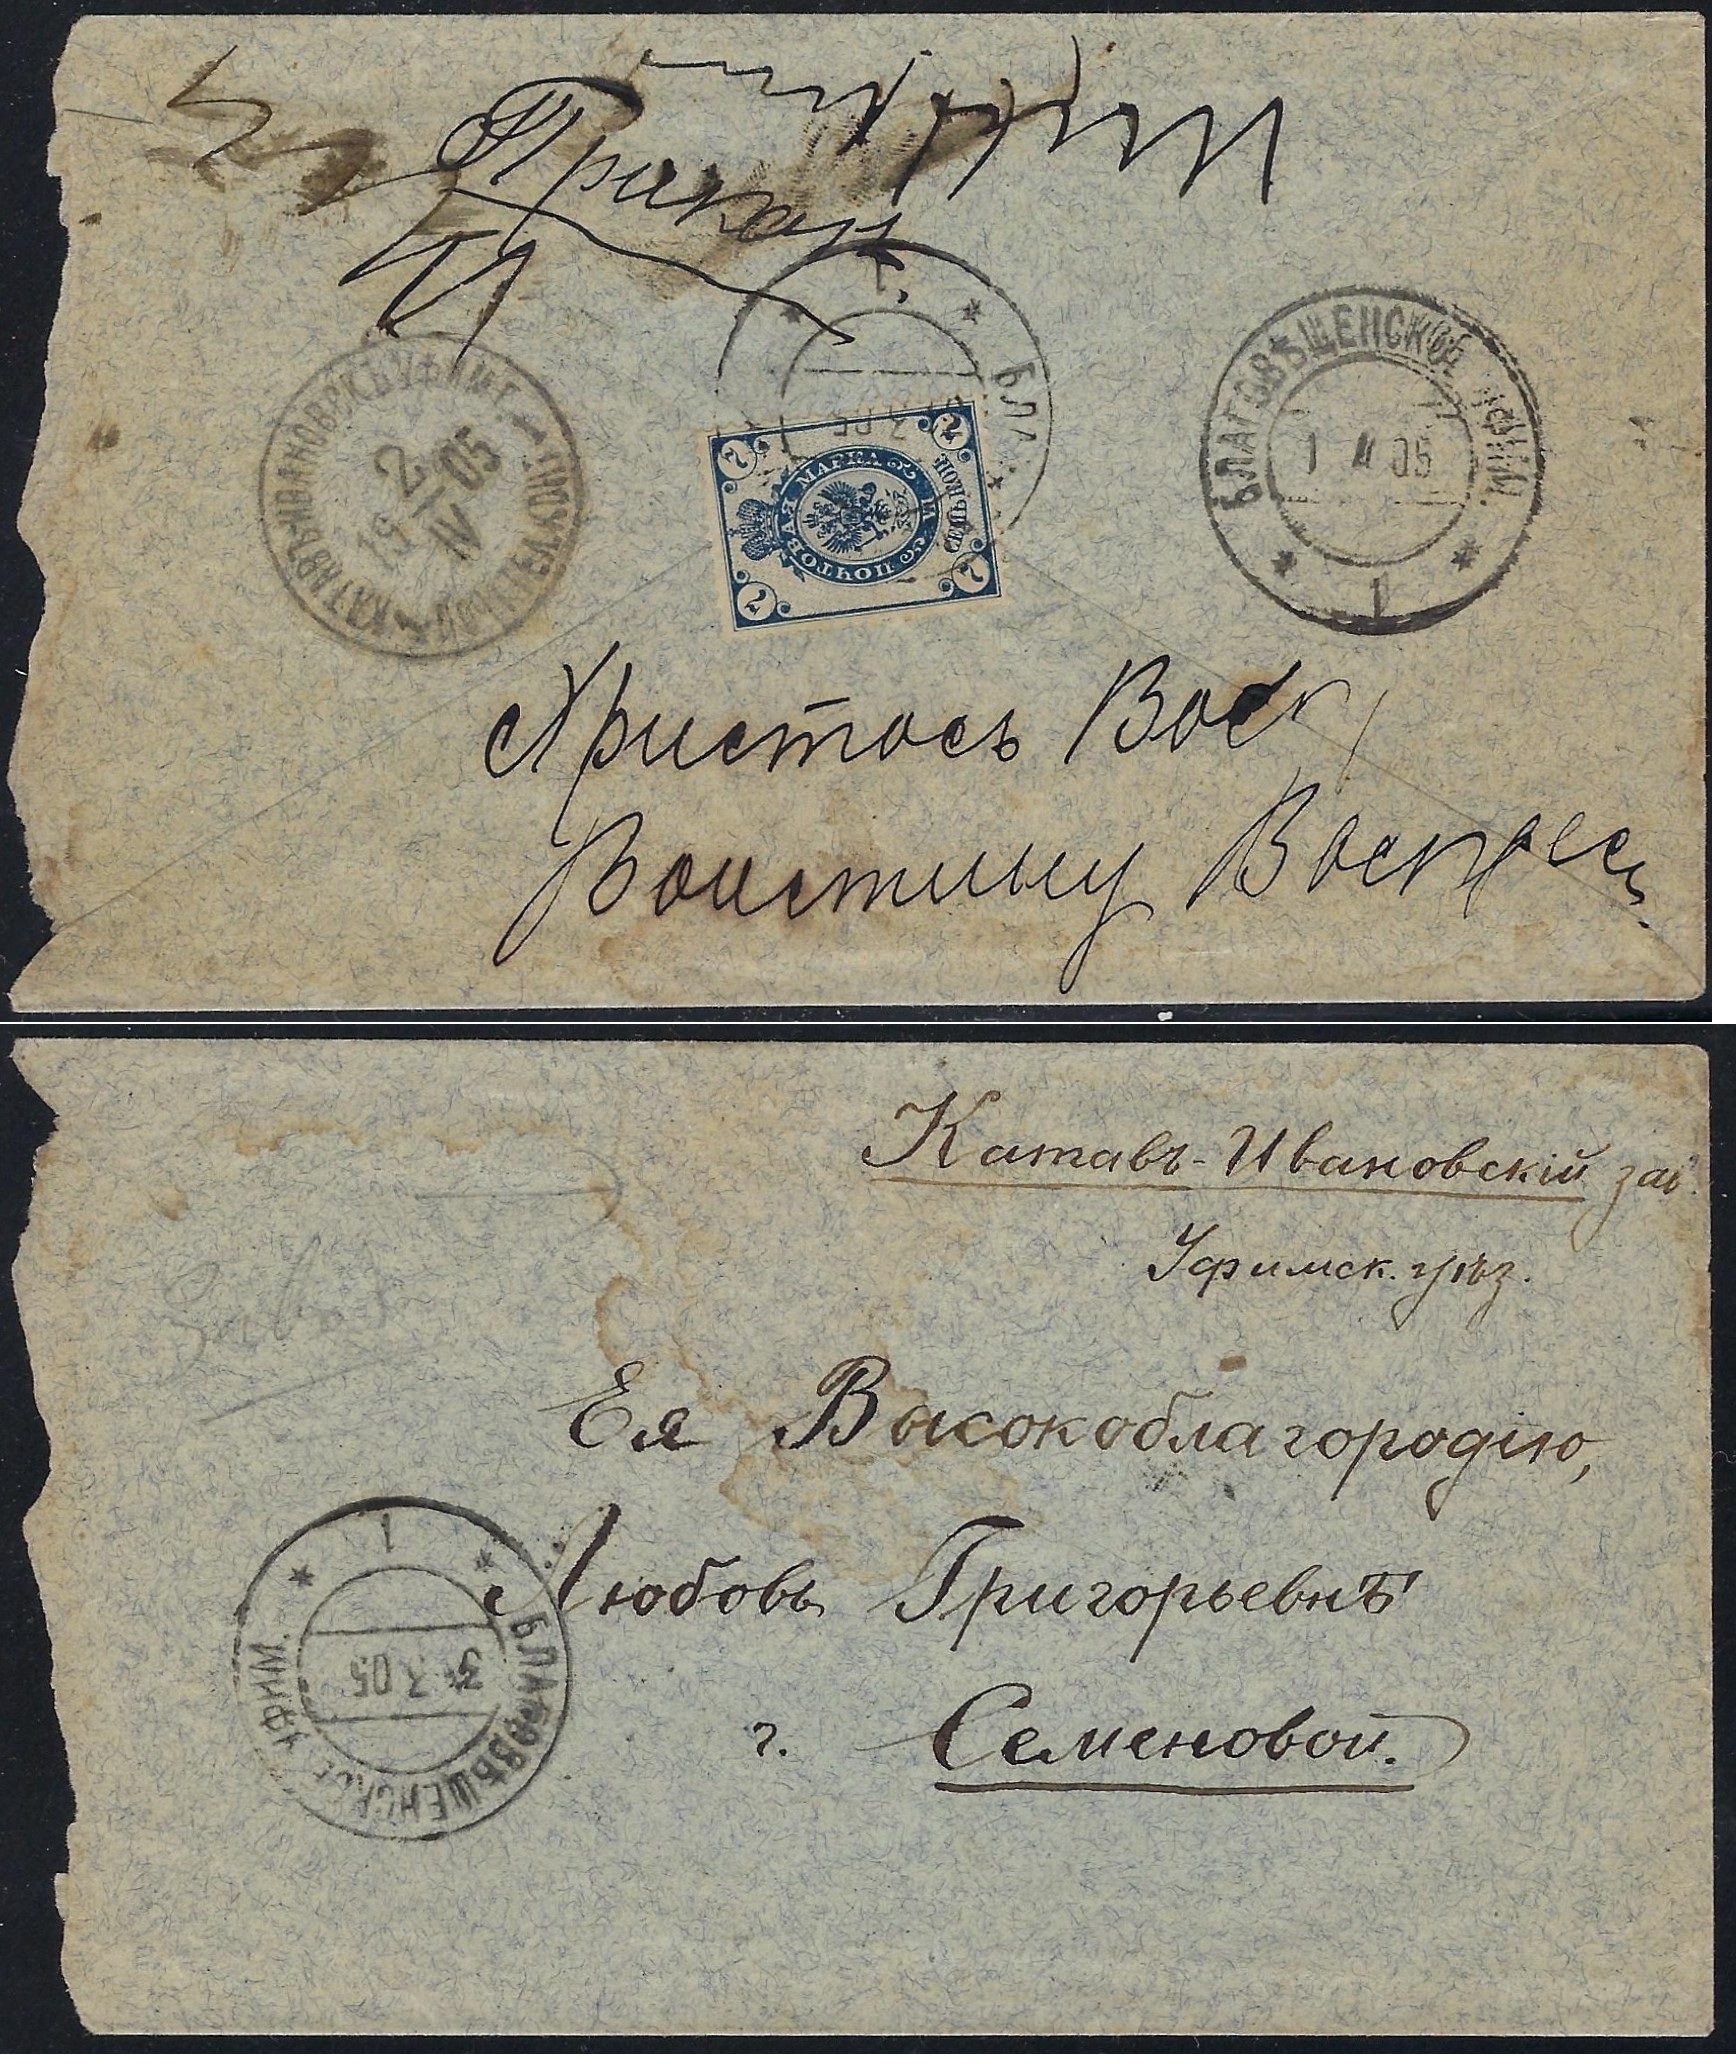 Прокоп
КАТАВЪ-ИВАНОВСКЪ УФИМ. Г.
2
IV
19 05
БЛА
3 05
1
ПОЧТОВАЯ МАРКА
СЕМЬ КОП.
7
7
7
7
БЛАГОВѢЩЕНСКОЕ УФИМ.
1 4 05
1
Христосъ Воск
Воистину Воскресъ
Катавъ-Ивановскій зав.
Уфимск. уѣз.
Ея Высокоблагородію,
Любовь Григорьевнѣ
г. Семеновой.
БЛАГОВѢЩЕНСКОЕ УФИМ.
31 3 05
1